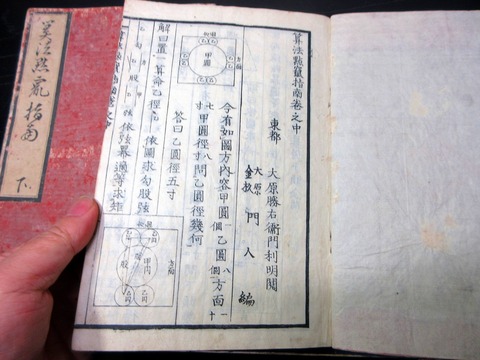 算法點竄指南卷之中
東都 大原勝右衛門利明閲
門人 編
今有如圖方内容甲圓一個乙圓八個方面一十
七寸甲圓徑八寸問乙圓徑幾何
答曰乙圓徑五寸
解曰置一算命乙徑 依圖求勾股弦
依弦冪適等求矩
甲圓
方面
甲円
股
乙円
乙円
方面
算法點竄指南 下